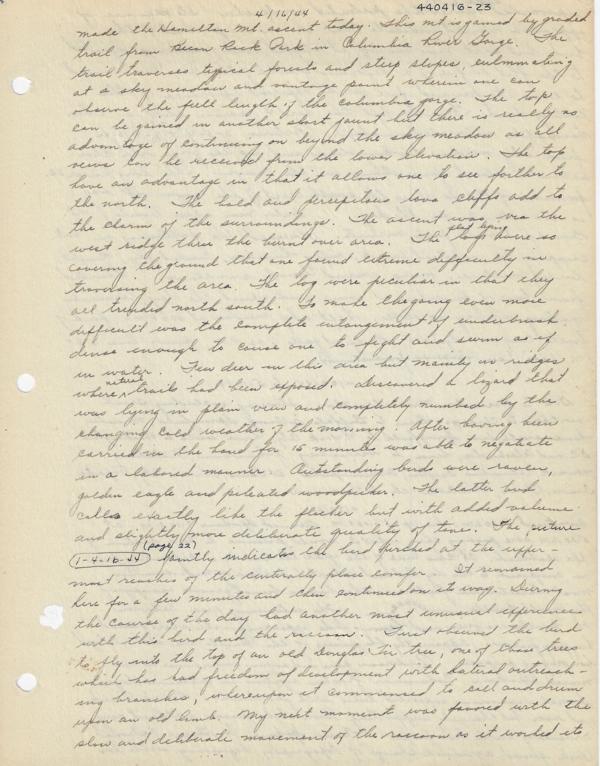 4/16/44
440416-23
made the Hamilton Mt. ascent today. This mt. is gained by graded
trail from Becon Rock Park in Columbia River Gorge. The
trail traverses typical forests and steep slopes, culminating
at a sky meadow and vantage point wherein one can
observe the full length of the Columbia gorge. The top
can be gained in another short jaunt but there is really no
advantage of continuing on beyond the sky meadow as all
views can be received from the lower elevation. The top
have an advantage in that it allows one to see farther to
the north. The bald and percipitous lava cliffs add to
the charm of the surroundings. The ascent was via the
west ridge thru the burnt over area. The flat lying logs were so
covering the ground that one found extreme difficulty in
traversing the area. The log were peculiar in that they
all trended north south. To make the going even more
difficult was the complete entangement of underbrush
dense enough to cause one to fight and swim as if
in water. Few deer in this area but mainly in ridges
where natural trails had been exposed. Discovered a lizard that
was lying in plain view and completely numbed by the
changing cold weather of the morning. After having been
carried in the hand for 15 minutes was able to negotiate
in a labored manner. Outstanding birds were raven,
golden eagle and pileated woodpecker. The latter bird
calls exactly like the flicker but with added volume
and slightly more deliberate quality of tones. The picture
(page 22)
1-4-16-44 faintly indicates the bird perched at the upper-
most reaches of the centrally place conifer. It remained
here for a few minutes and then continued on its way. During
the course of the day had another most unusual experience
with this bird and the raccoon. First observed the bird
to fly into the top of an old Douglas Fir tree, one of those trees
which has had freedom of development with lateral outreach-
ing branches, whereupon it commenced to call and drum
upon an old limb. My next moment was favored with the
slow and deliberate movement of the raccoon as it worked its